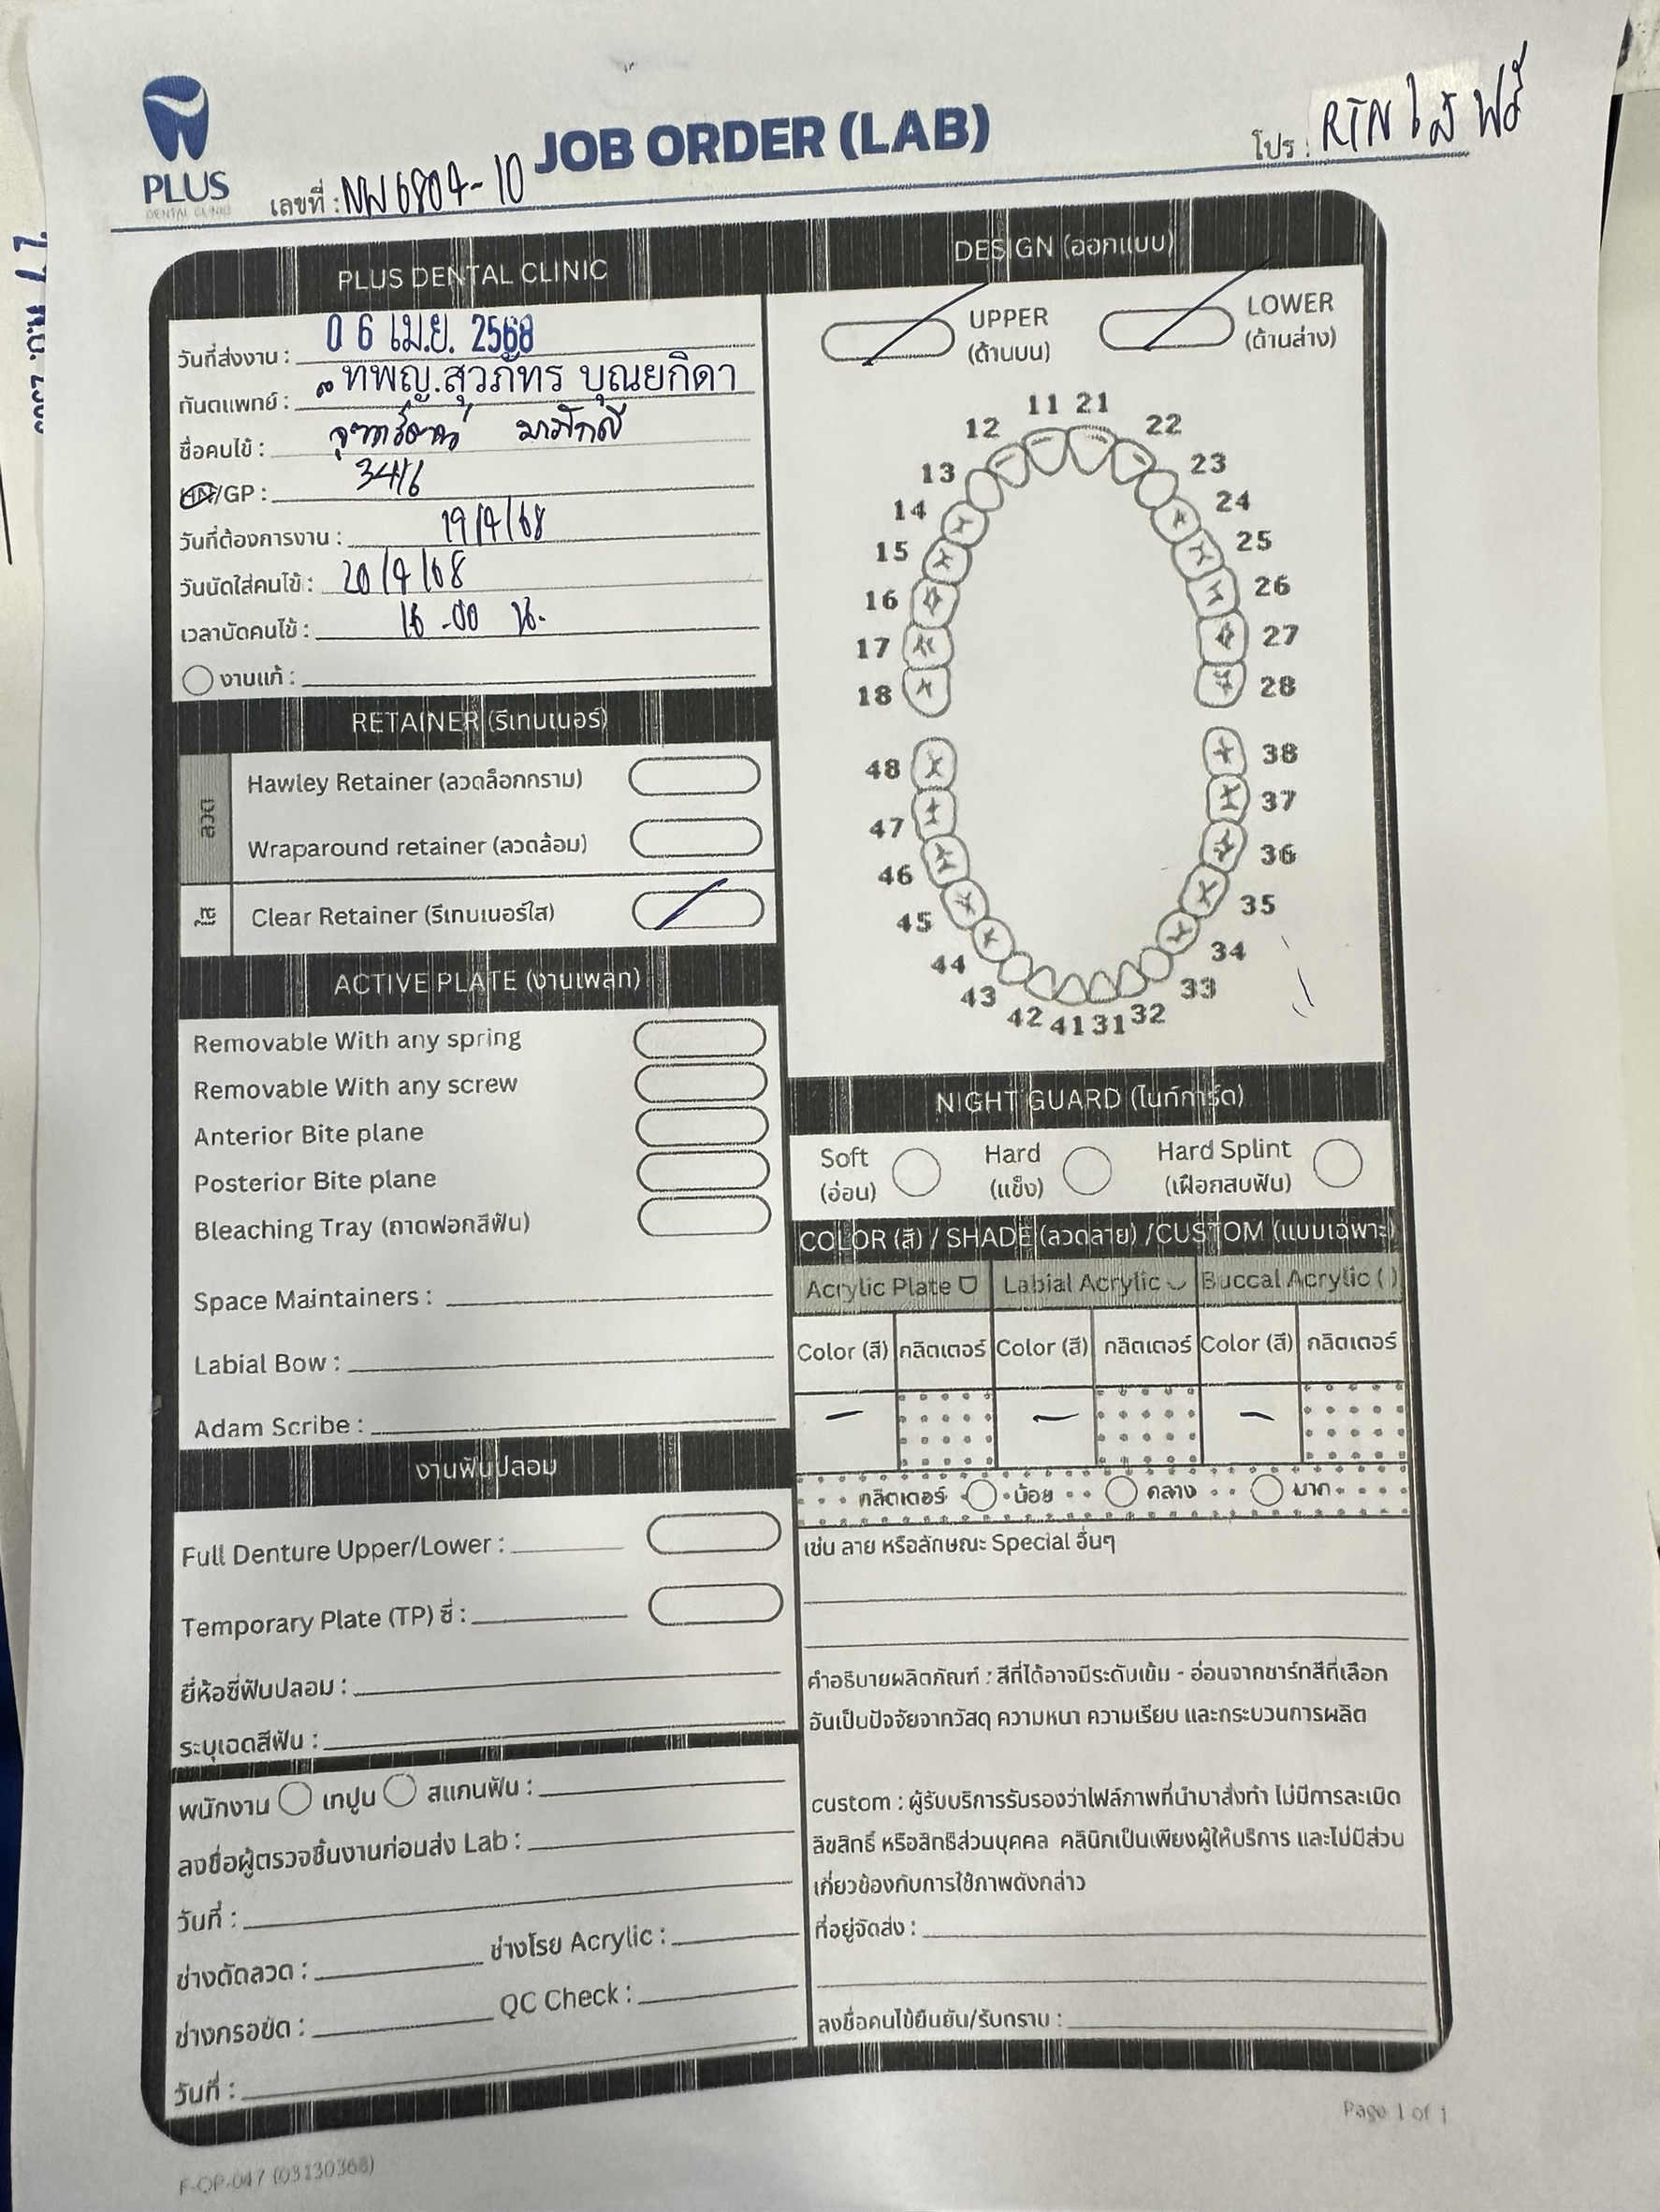 PLUS
DENTAL CLINIC
JOB ORDER (LAB)
เลขที่ : NW6804-10
โปร : RTN ใส ฟรี
PLUS DENTAL CLINIC
วันที่ส่งงาน : 0 6 เม.ย. 2568
ทันตแพทย์ : ทพญ.สุวภัทร บุณยกิดา
ชื่อคนไข้ :
HN/GP : 3416
วันที่ต้องการงาน : 19/4/68
วันนัดใส่คนไข้ : 20/4/68
เวลานัดคนไข้ : 16.00 น.
งานแก้ :
RETAINER (รีเทนเนอร์)
ลวด
Hawley Retainer (ลวดล็อกกราม)
Wraparound retainer (ลวดล้อม)
ใส
Clear Retainer (รีเทนเนอร์ใส)
ACTIVE PLATE (งานเพลท)
Removable With any spring
Removable With any screw
Anterior Bite plane
Posterior Bite plane
Bleaching Tray (ถาดฟอกสีฟัน)
Space Maintainers :
Labial Bow :
Adam Scribe :
งานฟันปลอม
Full Denture Upper/Lower :
Temporary Plate (TP) ซี่ :
ยี่ห้อซี่ฟันปลอม :
ระบุเฉดสีฟัน :
พนักงาน เทปูน สแกนฟัน :
ลงชื่อผู้ตรวจชิ้นงานก่อนส่ง Lab :
วันที่ :
ช่างดัดลวด : ช่างโรย Acrylic :
ช่างกรอขัด : QC Check :
วันที่ :
DESIGN (ออกแบบ)
UPPER LOWER
(ด้านบน) (ด้านล่าง)
11 21
12 22
13 23
14 24
15 25
16 26
17 27
18 28
48 38
47 37
46 36
45 35
44 34
43 33
42 41 31 32
NIGHT GUARD (ไนท์การ์ด)
Soft Hard Hard Splint
(อ่อน) (แข็ง) (เฝือกสบฟัน)
COLOR (สี) / SHADE (ลวดลาย) /CUSTOM (แบบเฉพาะ)
Acrylic Plate Labial Acrylic Buccal Acrylic ( )
Color (สี) กลิตเตอร์ Color (สี) กลิตเตอร์ Color (สี) กลิตเตอร์
- - -
กลิตเตอร์ น้อย กลาง มาก
เช่น ลาย หรือลักษณะ Special อื่นๆ
คำอธิบายผลิตภัณฑ์ : สีที่ได้อาจมีระดับเข้ม - อ่อนจากชาร์ทสีที่เลือก
อันเป็นปัจจัยจากวัสดุ ความหนา ความเรียบ และกระบวนการผลิต
custom : ผู้รับบริการรับรองว่าไฟล์ภาพที่นำมาสั่งทำ ไม่มีการละเมิด
ลิขสิทธิ์ หรือสิทธิส่วนบุคคล คลินิกเป็นเพียงผู้ให้บริการ และไม่มีส่วน
เกี่ยวข้องกับการใช้ภาพดังกล่าว
ที่อยู่จัดส่ง :
ลงชื่อคนไข้ยืนยัน/รับทราบ :
Page 1 of 1
F-OP-047 (03130368)